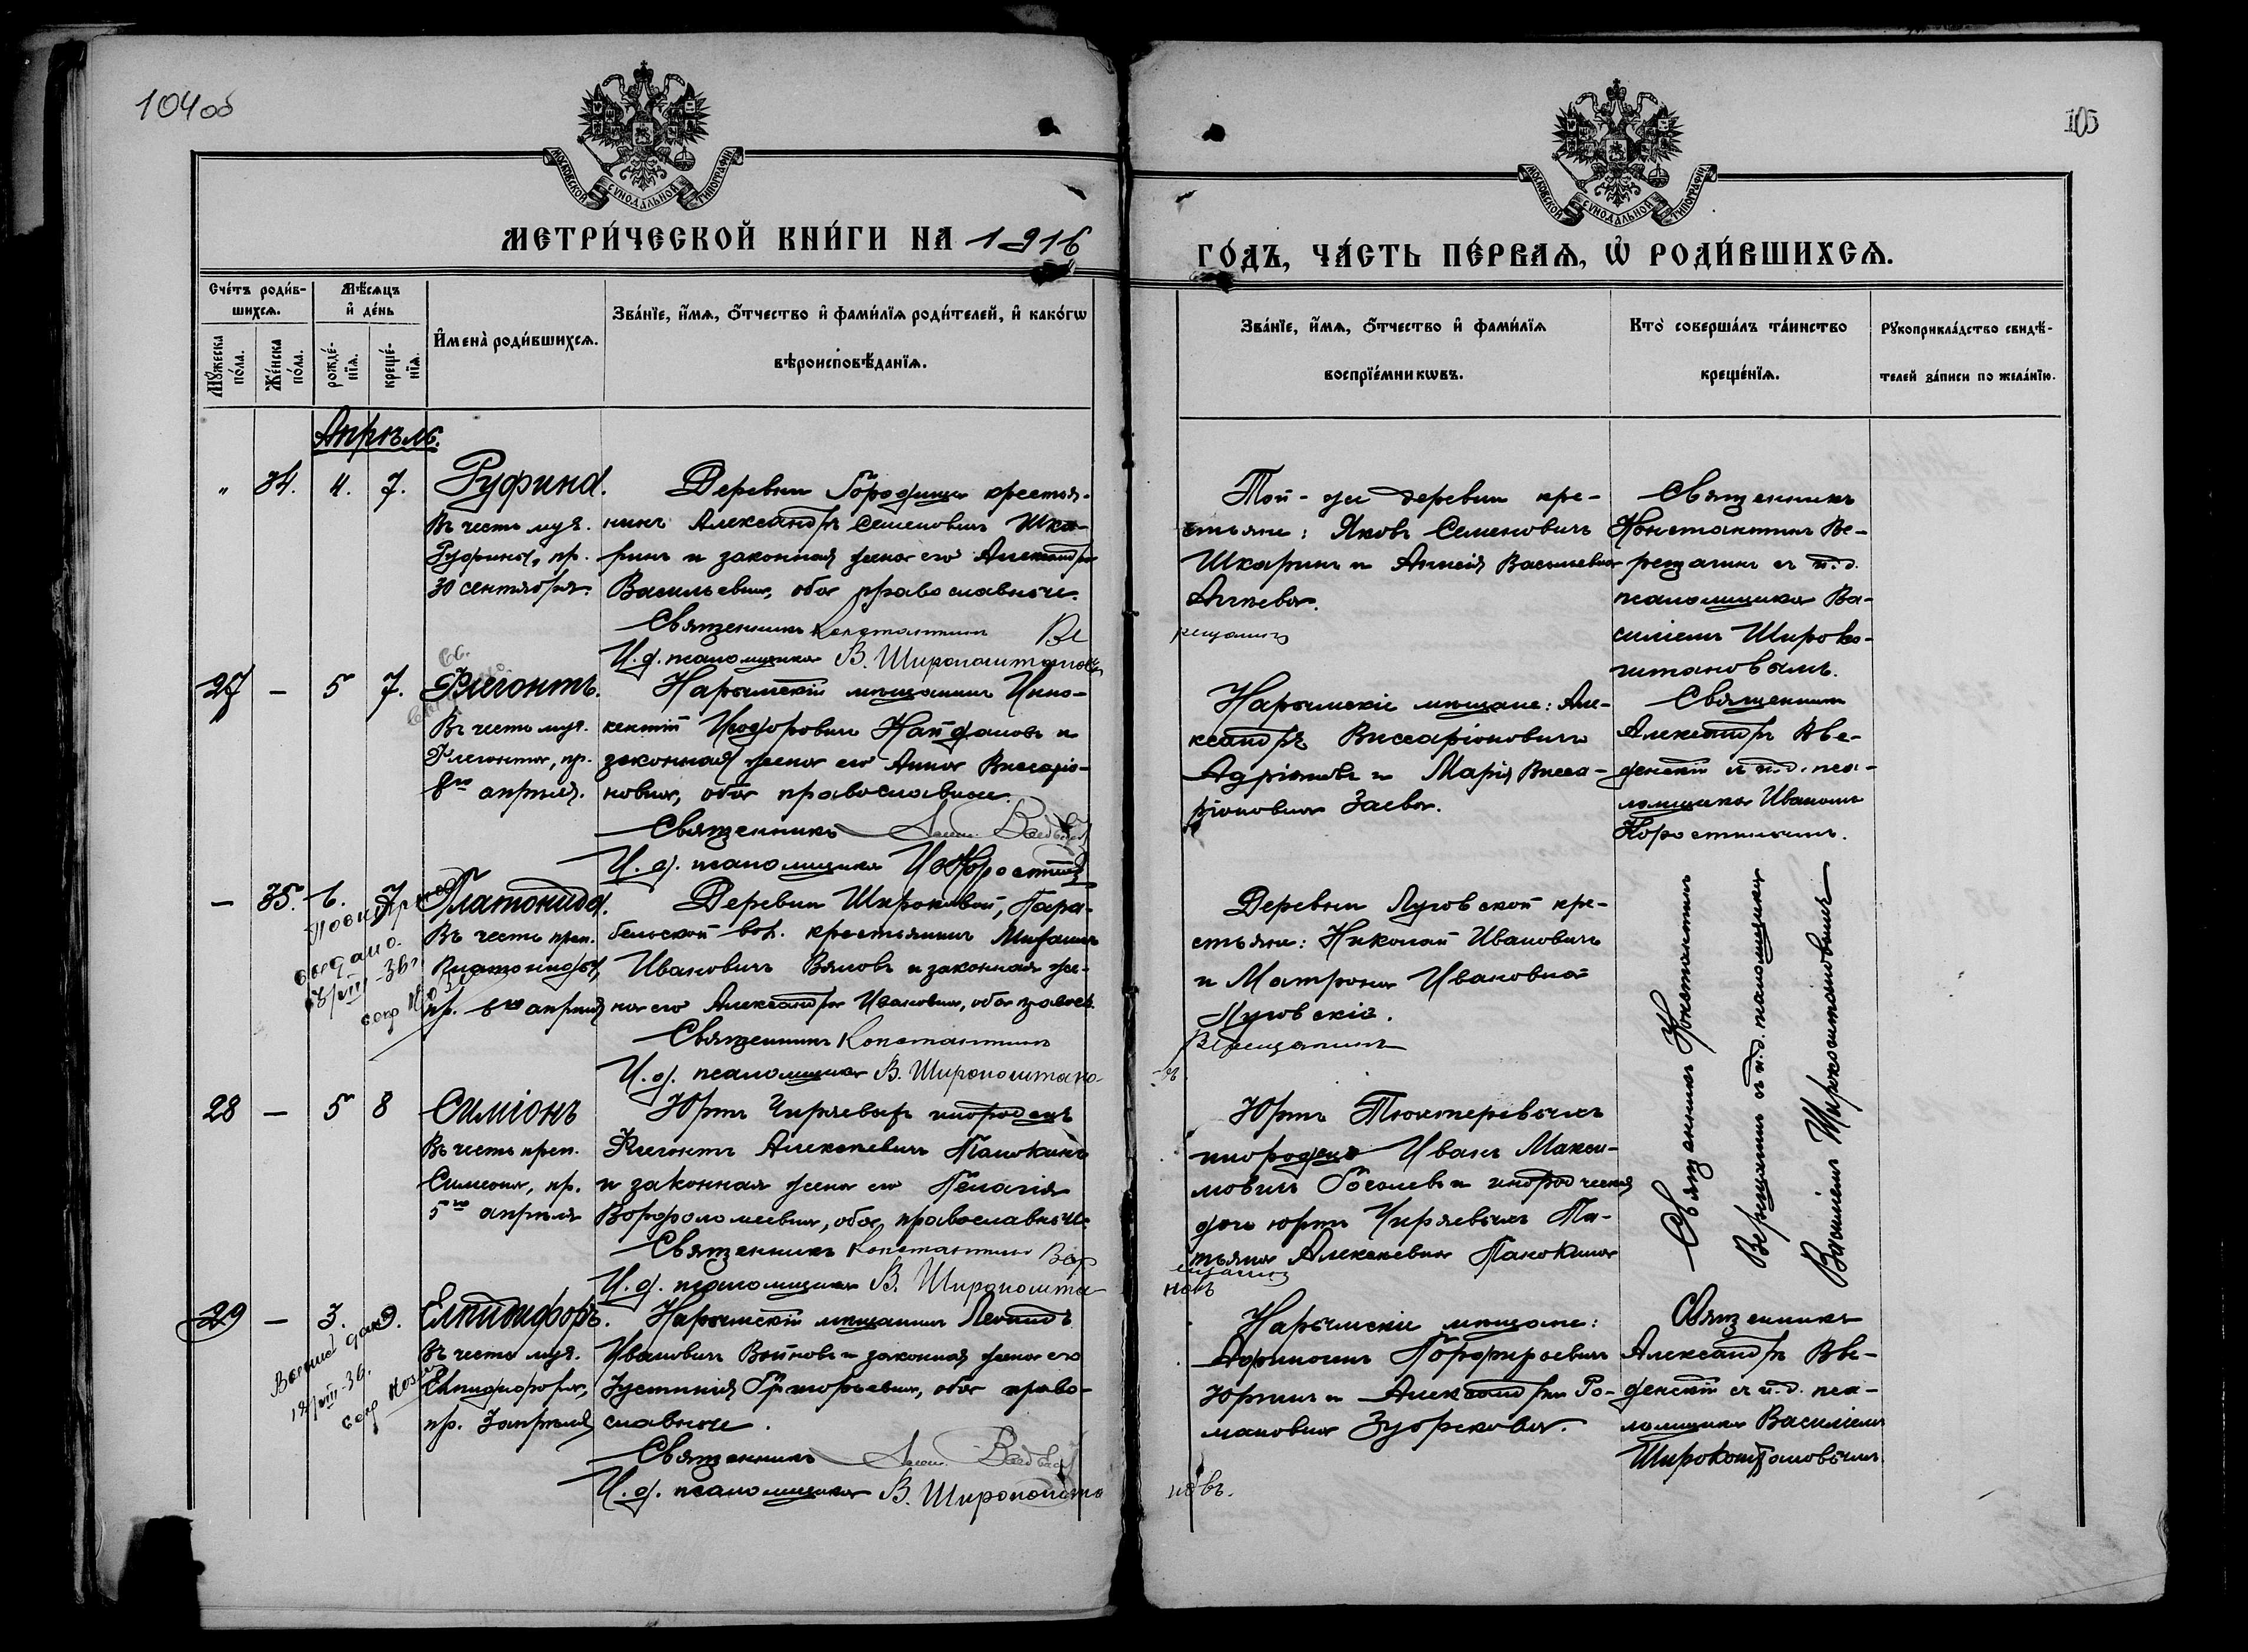 104 об
105
МОСКОВСКОЙ СѴНОДАЛЬНОЙ ТИПОГРАФІИ
МОСКОВСКОЙ СѴНОДАЛЬНОЙ ТИПОГРАФІИ
МЕТРИ́ЧЕСКОЙ КНИ́ГИ НА 1916
ГО́ДЪ, ЧА́СТЬ ПЕ́РВАѦ, Ѡ҆ РОДИ́ВШИХСѦ.
Сче́тъ роди́в-
шихсѧ.
Мꙋ́жеска по́ла.
Же́нска по́ла.
Мѣ́сѧцъ и҆ де́нь
рожде́-
нїѧ.
креще́-
нїѧ.
И҆мена̀ роди́вшихсѧ.
Зва́нїе, и҆́мѧ, ѻ҆́тчество и҆ фами́лїѧ роди́телей, и҆ како́гѡ
вѣроисповѣ́данїѧ.
Зва́нїе, и҆́мѧ, ѻ҆́тчество и҆ фами́лїѧ
воспрїе́мникѡвъ.
Кто̀ соверша́лъ та́инство
креще́нїѧ.
Рꙋкоприкла́дство свидѣ́-
телей за́писи по жела́нїю.
Апрѣль.
" 34. 4. 7. Руфина.
Въ честь муч.
Руфины, пр.
30 сентября.
Деревни Городищи крестья-
нинъ Александръ Семеновичъ Шка-
ринъ и законная жена его Александра
Васильевна, оба православные.
Священникъ Константинъ Ве
И. д. псаломщика В. Широкоштановъ
Той-же деревни кре-
стьяне: Яковъ Семеновичъ
Шкаринъ и Васильевна
рещагинъ
Священникъ
Константинъ Ве-
рещагинъ съ и. д.
псаломщика Ва-
силіемъ Широко-
штановымъ.
27 – 5 7. Флегонтъ.
Въ честь муч.
Флегонта, пр.
8го апрѣля.
Нарымскій мѣщанинъ Инно-
кентій Ѳеодоровичъ Найдановъ и
законная жена его Анна Виссаріо-
новна, оба православные.
Священникъ
И. д. псаломщика
Нарымскіе мѣщане: Але-
ксандръ Виссаріоновичъ
и Марія Висса-
ріоновна Заева.
Священникъ
Александръ Вве-
денскій и и. д. пса-
ломщика Иваномъ
– 35. 6. 7 Платонида.
Въ честь преп.
Платониды,
пр. 6го апрѣля
Повторно
выдано
18/VIII-36г.
Деревни Широковой, Пара-
бельской вол. крестьянинъ
Ивановичъ Вяловъ и законная же-
на его Александра Ивановна, оба правосл.
Священникъ Константинъ
И. д. псаломщика В. Широкоштано-
Деревни Луговской кре-
стьяне: Николай Ивановичъ
и Матрона Ивановна
Луговскіе.
Верещагинъ
въ.
Священникъ Константинъ
Верещагинъ съ и. д. псаломщика
Василіемъ Широкоштановымъ
28 – 5 8 Симеонъ
Въ честь преп.
Симеона, пр.
5го апрѣля
Юртъ инородецъ
Флегонтъ Алексѣевичъ
и законная жена его Пелагія
Ворфоломеевна, оба православные
Священникъ Константинъ Вер
И. д. псаломщика В. Широкошта-
Юртъ
инородецъ Иванъ Макси-
мовичъ и инородческая
дочь юртъ Та-
тьяна Алексѣевна
ещагинъ
новъ
29 – 3. 9. Елпидифоръ.
Въ честь муч.
Елпидифора,
пр. 3 апрѣля
18/VIII-36.
Нарымскій мѣщанинъ Леонидъ
Ивановичъ Войновъ и законная жена его
Іустинія Григорьевна, оба право-
славные.
Священникъ
И. д. псаломщика В. Широкошта
Нарымскіе мѣщане:
Порфирьевичъ
и Александра Ро-
мановна
новъ.
Священникъ
Александръ Вве-
денскій съ и. д. пса-
ломщика Василіемъ
Широкоштановымъ